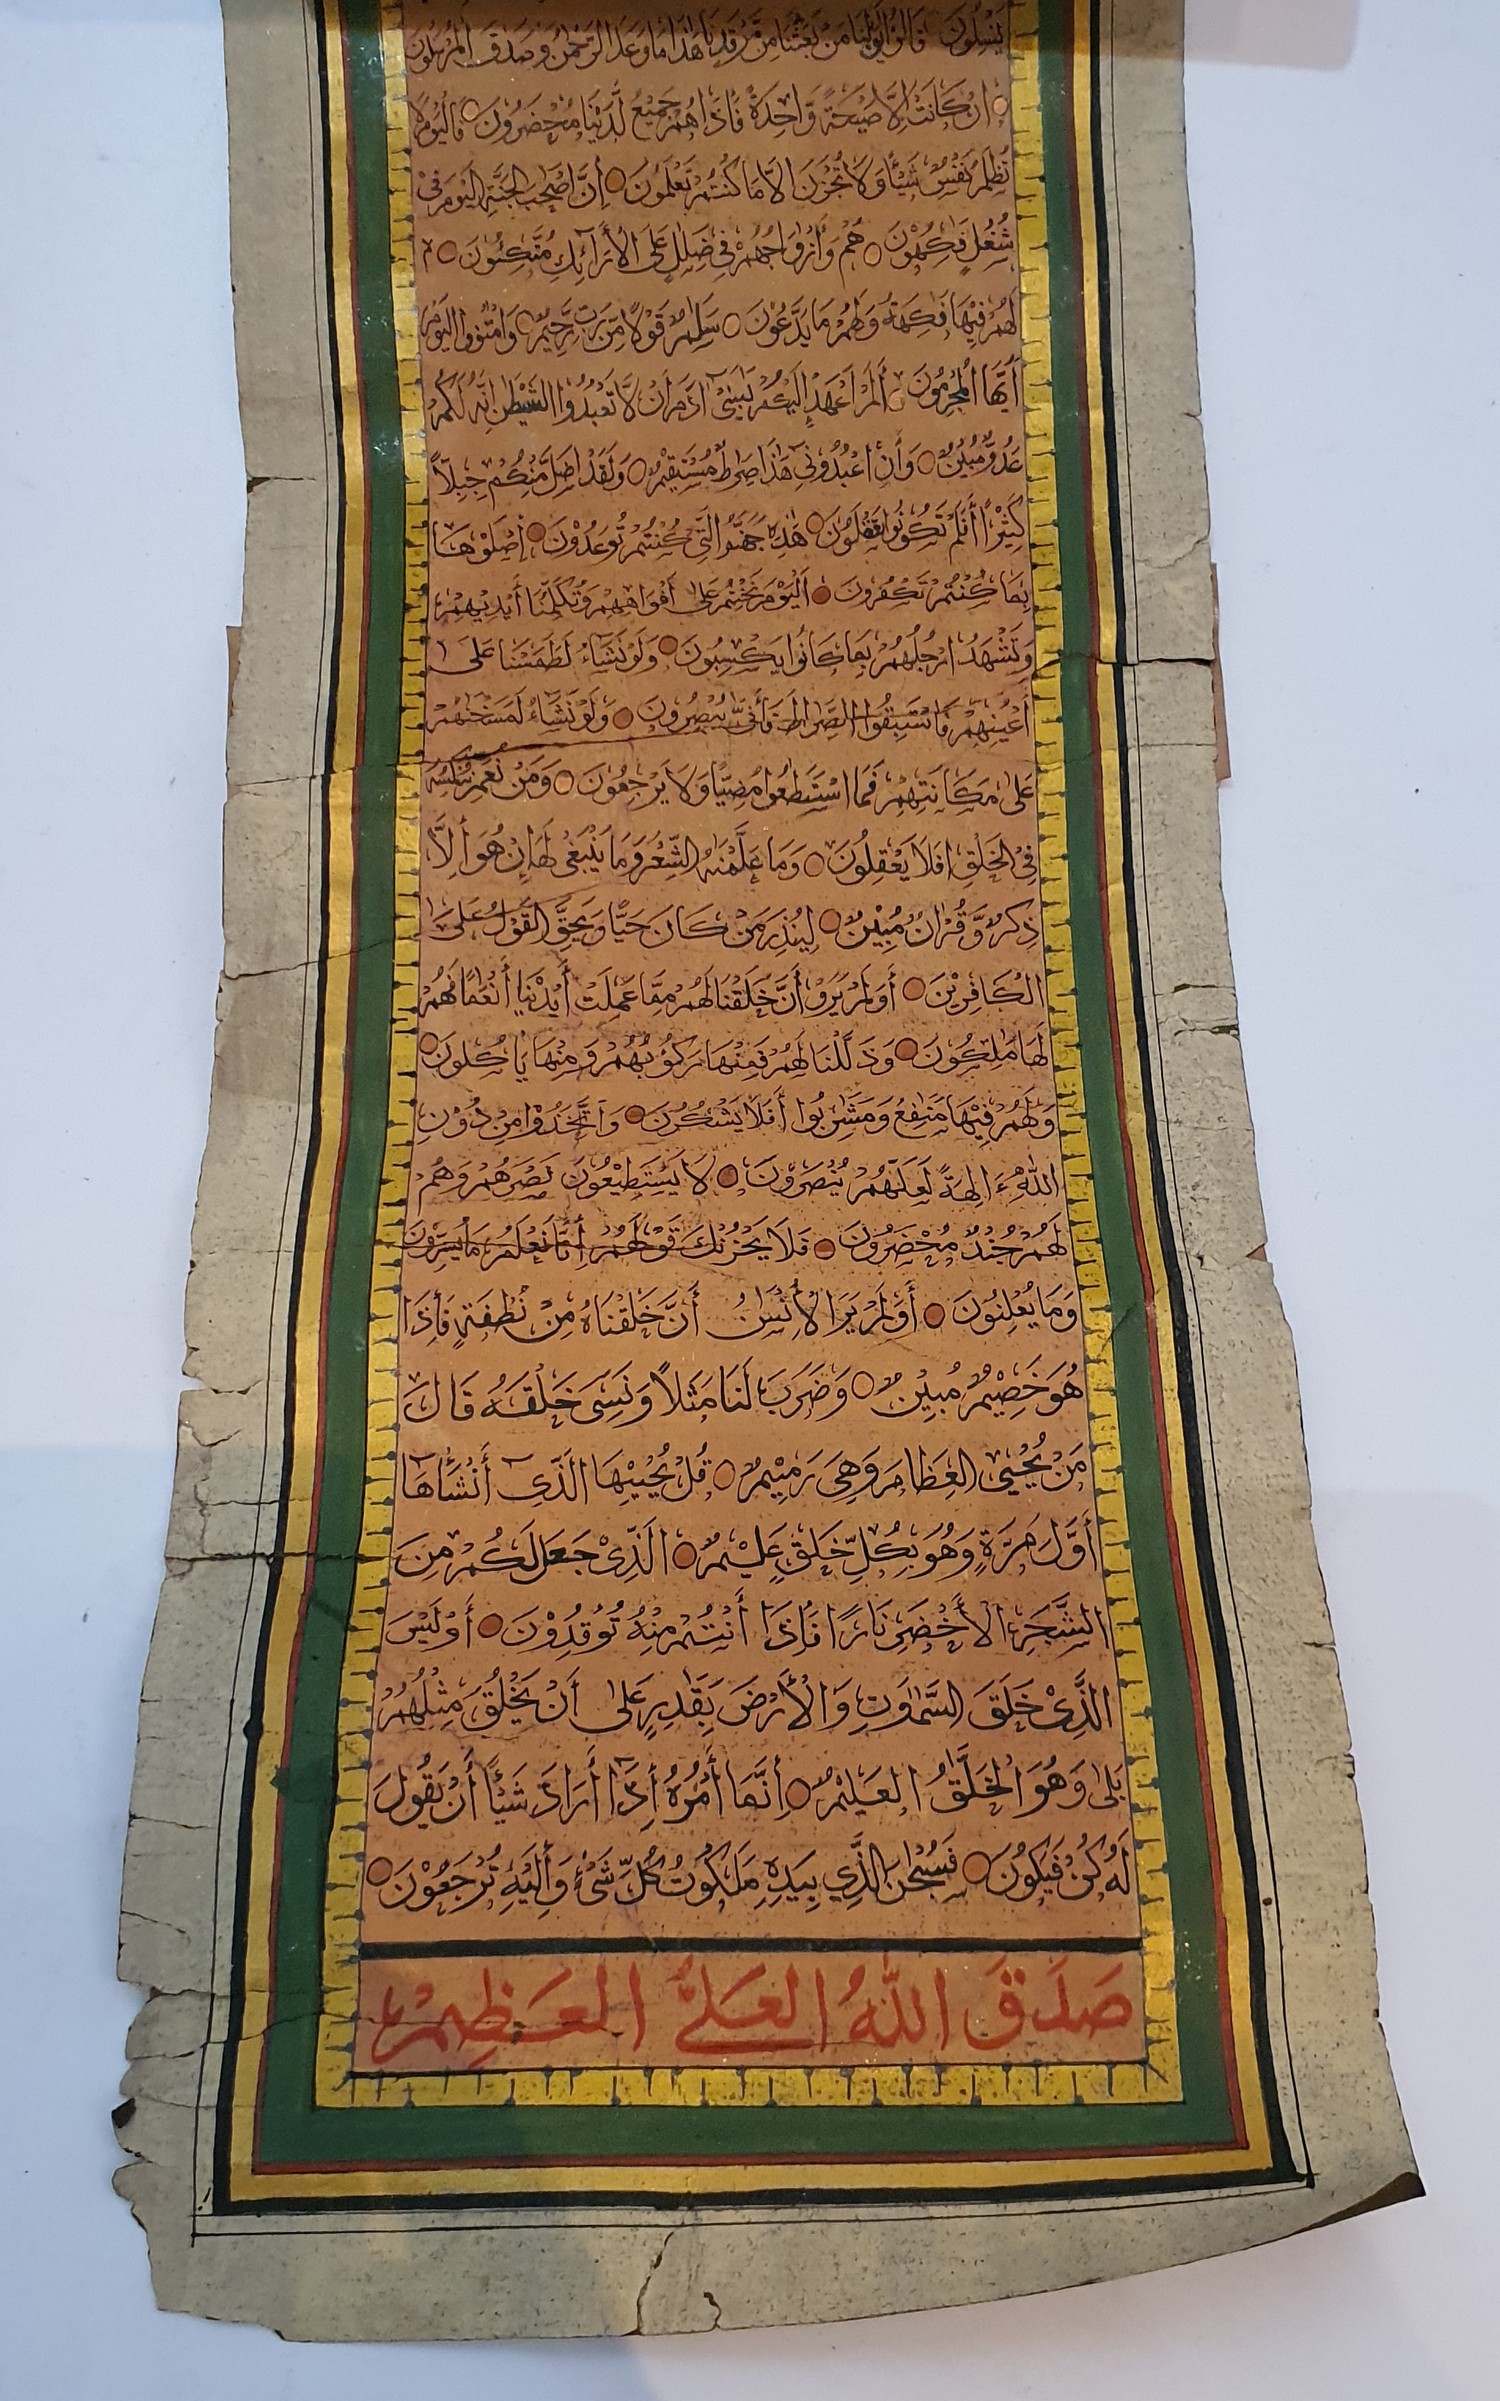 ينسلون قالوا يويلنا من بعثنا من مرقدنا هذا ما وعد الرحمن وصدق المرسلون
ان كانت الا صيحة واحدة فاذا هم جميع لدينا محضرون فاليوم لا
تظلم نفس شيئا ولا تجزون الا ما كنتم تعلمون ان اصحب الجنة اليوم في
شغل فكهون هم وأزواجهم في ضلل على الأرائك متكئون
لهم فيها فكهة ولهم ما يدعون سلم قولا من رب رحيم وامتزوا اليوم
أيها المجرمون ألم اعهد اليكم يبني ادم ان لا تعبدوا الشيطن انه لكم
عدو مبين وأن اعبدوني هذا صرط مستقيم ولقد اضل منكم جبلا
كثيرا أفلم تكونوا تعقلون هذه جهنم التي كنتم توعدون اصلوها
بما كنتم تكفرون اليوم نختم على أفواههم وتكلمنا أيديهم
وتشهد ارجلهم بما كانوا يكسبون ولو نشاء لطمسنا على
أعينهم فاستبقوا الصراط فأنى يبصرون ولو نشاء لمسخنهم
على مكانتهم فما استطعوا مضيا ولا يرجعون ومن نعمر ننكسه
في الخلق افلا يعقلون وما علمنه الشعر وما ينبغي له إن هو ألا
ذكر وقران مبين لينذر من كان حيا ويحق القول على
الكافرين أولم يرو أن خلقنا لهم مما عملت أيدنيا أنعما فهم
لها ملكون وذللنا لهم فمنها ركوبهم ومنها ياكلون
ولهم فيها منفع ومشربوا أفلا يشكرن واتخذوا من دون
الله ءالهة لعلهم ينصرون لا يستطيعون نصرهم وهم
لهم جند محضرون فلا يحزنك قولهم أنا نعلم ما يسرون
وما يعلنون أولم ير الأنسن أن خلقناه من نطفة فأذا
هو خصيم مبين وضرب لنا مثلا ونسى خلقه قال
من يحيي العظام وهي رميم قل يحييها الذي أنشأها
أول مرة وهو بكل خلق عليم الذي جعل لكم من
الشجر الأخضر نارا فأذا أنتم منه توقدون أوليس
الذي خلق السموت والأرض بقدر على أن يخلق مثلهم
بلى وهو الخلق العليم أنما أمره أذا أراد شيئا أن يقول
له كن فيكون فسبحن الذي بيده ملكوت كل شيء وأليه ترجعون
صدق الله العلي العظيم